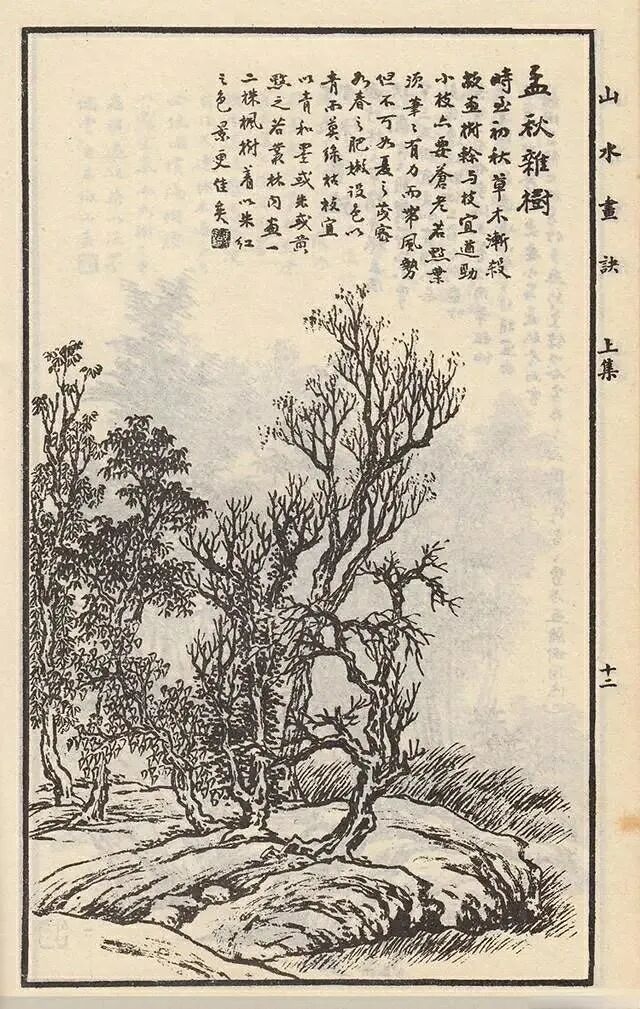 山水畫訣 上集 十二
孟秋雜樹
時至初秋草木漸殺
故畫樹榦与枝宜遒勁
小枝亦要蒼老若點葉
須筆〻有力而帶風勢
但不可如夏之茂密
如春之肥嫩設色以
青莫綠枯枝宜
以青和墨或朱或黄
點之若叢林内畫一
二株楓樹着以朱紅
之色景更佳矣